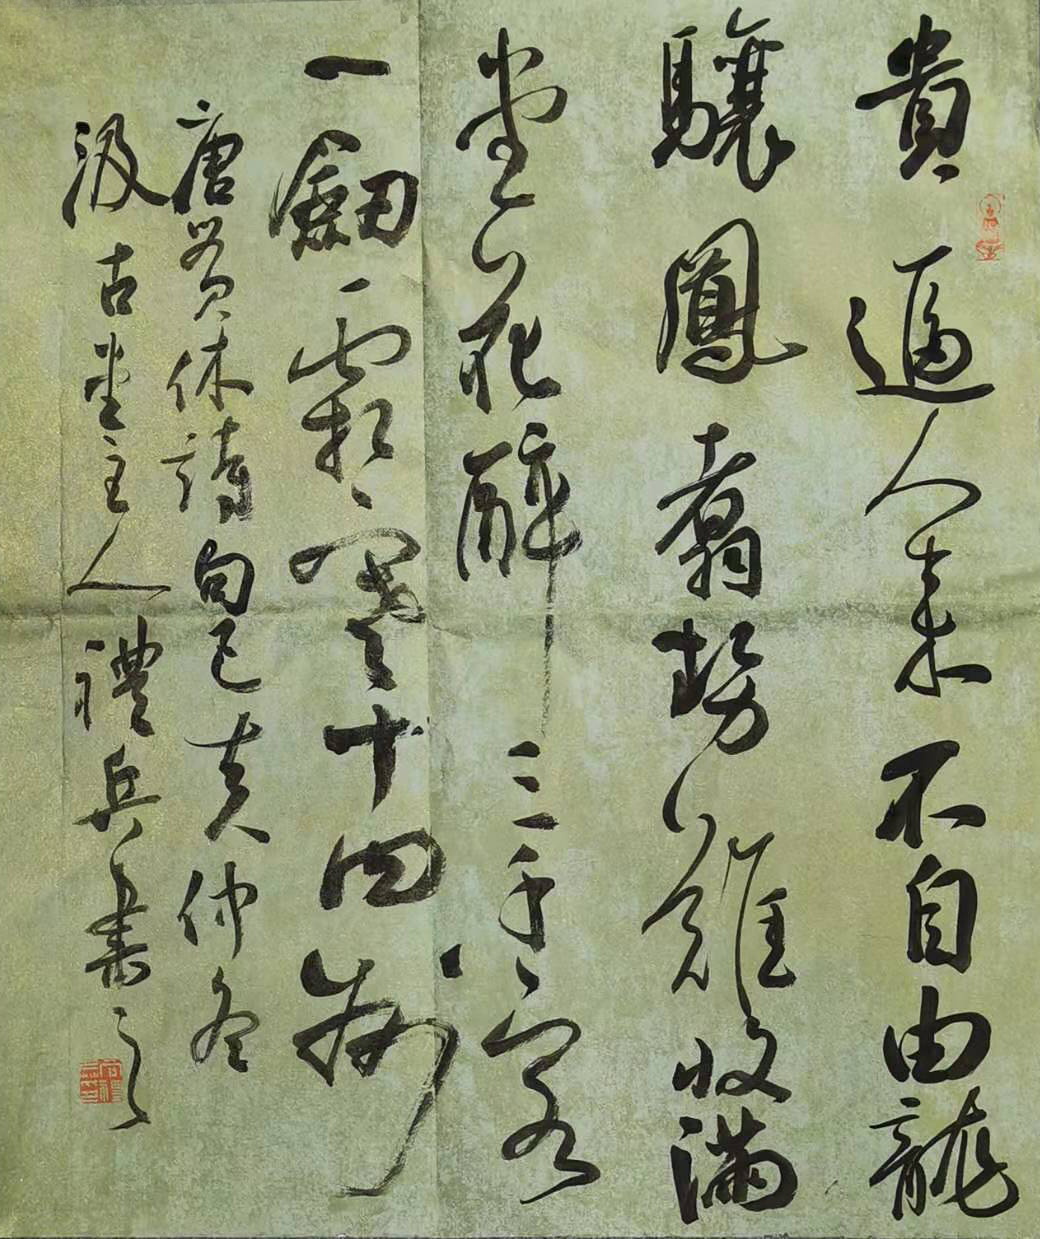 貴逼人来不自由龍
驤鳳翥勢難收滿
堂花醉三千客
一劒霜寒十四州
唐貫休詩句己亥仲冬
汲古堂主人禮兵書之